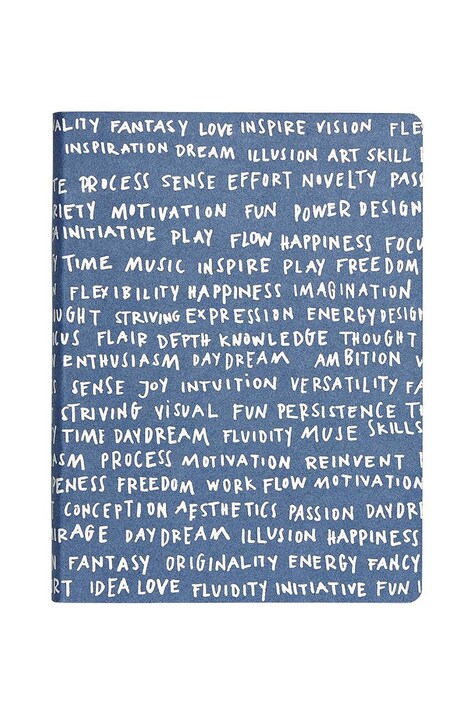 ALITY FANTASY LOVE INSPIRE VISION FLE
INSPIRATION DREAM ILLUSION ART SKILL
TE PROCESS SENSE EFFORT NOVELTY PAS
RIETY MOTIVATION FUN POWER DESIGN
A INITIATIVE PLAY FLOW HAPPINESS FOCU
Y TIME MUSIC INSPIRE PLAY FREEDOM
N FLEXIBILITY HAPPINESS IMAGINATION
OUGHT STRIVING EXPRESSION ENERGY DESIGN
CUS FLAIR DEPTH KNOWLEDGE THOUGHT
Y ENTHUSIASM DAYDREAM AMBITION V
S SENSE JOY INTUITION VERSATILITY FA
STRIVING VISUAL FUN PERSISTENCE T
Y TIME DAYDREAM FLUIDITY MUSE SKILLS
ASM PROCESS MOTIVATION REINVENT
PENESS FREEDOM WORK FLOW MOTIVATION
T CONCEPTION AESTHETICS PASSION DAYDR
IRAGE DAYDREAM ILLUSION HAPPINESS
N FANTASY ORIGINALITY ENERGY FANCY
RT IDEA LOVE FLUIDITY INITIATIVE FUN I